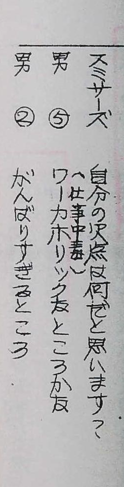 スミサーズ 自分の欠点は何だと思います?
男 ⑤ ワーカホリックなところかな
(仕事中毒)
男 ② がんばりすぎるところ